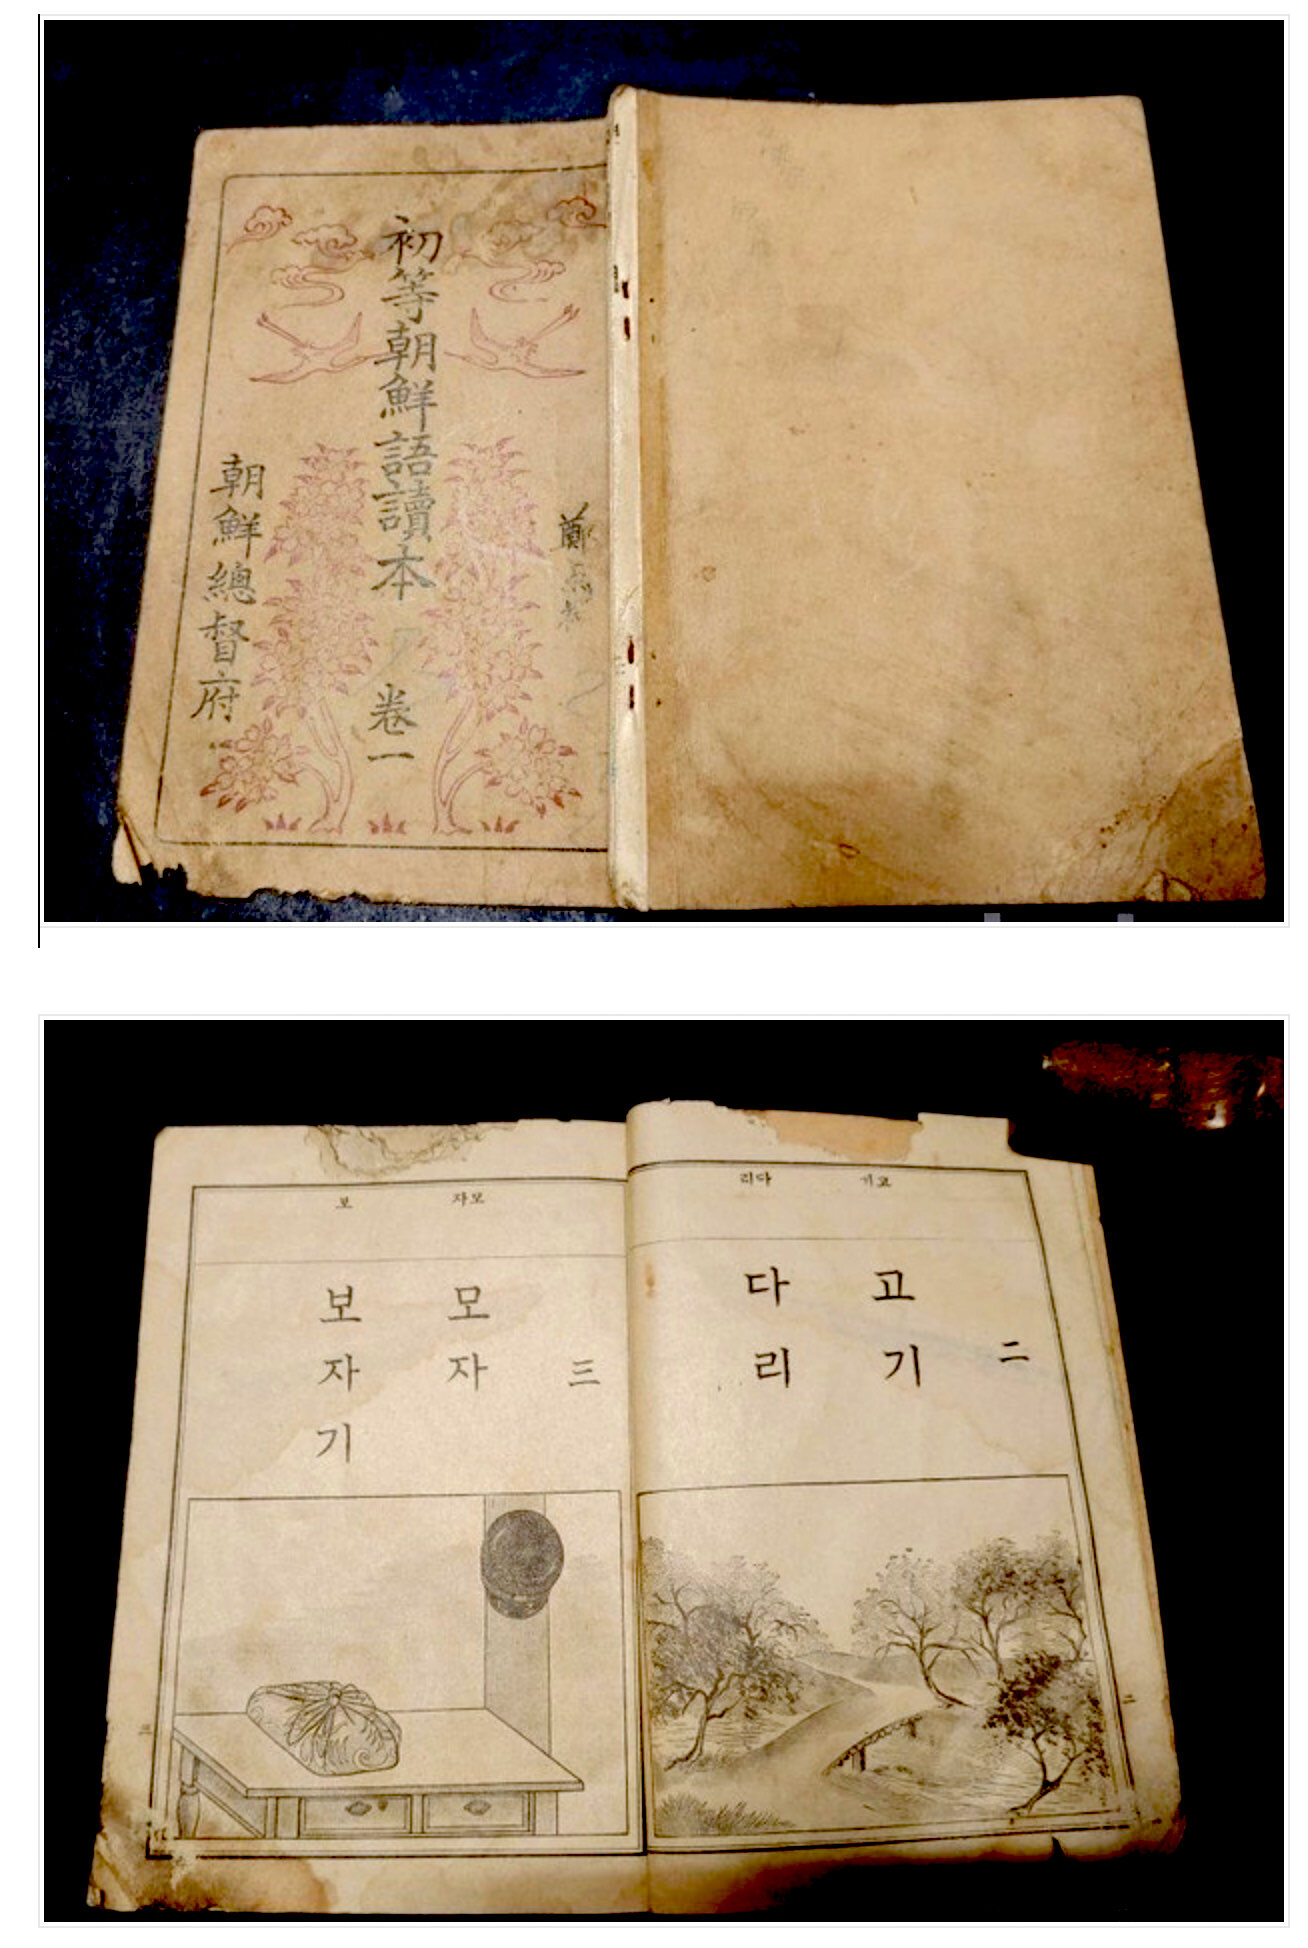 初等朝鮮語讀本
卷一
朝鮮總督府
鄭
二
고기
다리
고기
다리
二
三
모자
보자기
모자
보
三